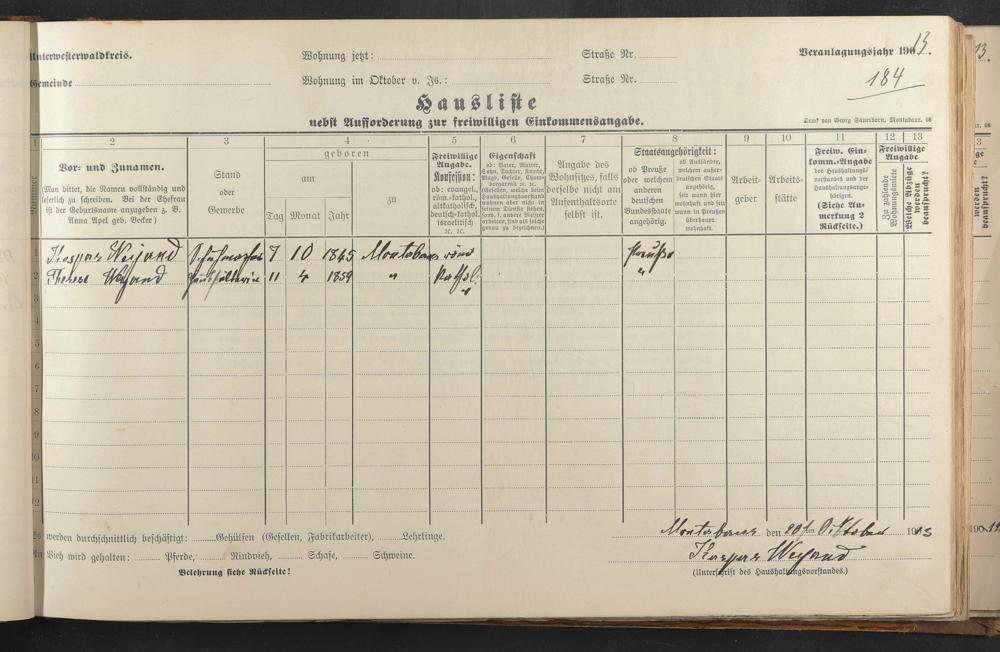 Unterwesterwaldkreis. Wohnung jetzt: Straße Nr. Veranlagungsjahr 1913.
Gemeinde Wohnung im Oktober v. Js.: Straße Nr. 184
Hausliste
nebst Aufforderung zur freiwilligen Einkommensangabe.
Druck von Georg Sauerborn, Montabaur.
1 2 3 4 5 6 7 8 9 10 11 12 13
Nummer
Vor- und Zunamen.
(Man bittet, die Namen vollständig und
leserlich zu schreiben. Bei der Ehefrau
ist der Geburtsname anzugeben z. B.
Anna Apel geb. Becker)
Stand
oder
Gewerbe
geboren
am
Tag Monat Jahr
zu
Freiwillige
Angabe.
Konfession:
ob: evangel.,
röm.-kathol.,
altkatholisch,
deutsch-kathol.
israelitisch
ꝛc. ꝛc.
Eigenschaft
ob: Vater, Mutter,
Sohn, Tochter, Knecht,
Magd, Geselle,
Angabe des
Wohnsitzes, falls
derselbe nicht am
Aufenthaltsorte
selbst ist.
Staatsangehörigkeit:
ob Preuße
oder welchem
anderen
deutschen
Bundesstaate
angehörig.
ob Ausländer,
welchem außer-
deutschen Staate
angehörig,
seit wann hier
wohnhaft und seit
wann in Preußen
überhaupt
wohnhaft.
Arbeit-
geber
Arbeits-
stätte
Freiw. Ein-
komm.-Angabe
des Haushaltungs-
vorstandes und der
Haushaltungsange-
hörigen.
(Siehe An-
merkung 2
Rückseite.)
Freiwillige
Angabe
Zu zahlende
Wohnungsmiete
Welche Abzüge
werden
beansprucht?
1 Kaspar Weyand Schuhmacher 7 10 1845 Montabaur röm Preuße
2 Therese Weyand Haushälterin 11 4 1859 " Kathol. "
3
4
5
6
7
8
9
10
11
12
Es werden durchschnittlich beschäftigt: Gehülfen (Gesellen, Fabrikarbeiter), Lehrlinge.
An Vieh wird gehalten: Pferde, Rindvieh, Schafe, Schweine.
Belehrung siehe Rückseite!
Montabaur den 20ten Oktober 1913
Kaspar Weyand
(Unterschrift des Haushaltungsvorstandes.)